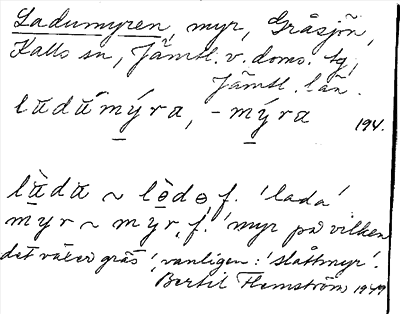 Ladumyren, myr, Gråsjön,
Kalls sn, Jämtl. v. doms. tg,
Jämtl. län.
lădămýra, -mýra 194.
lădă ~ lèdɵ f. 'lada'
myr ~ mýr, f. 'myr på vilken
det växer gräs', vanligen: 'slåttmyr'.
Bertil Flemström 1949